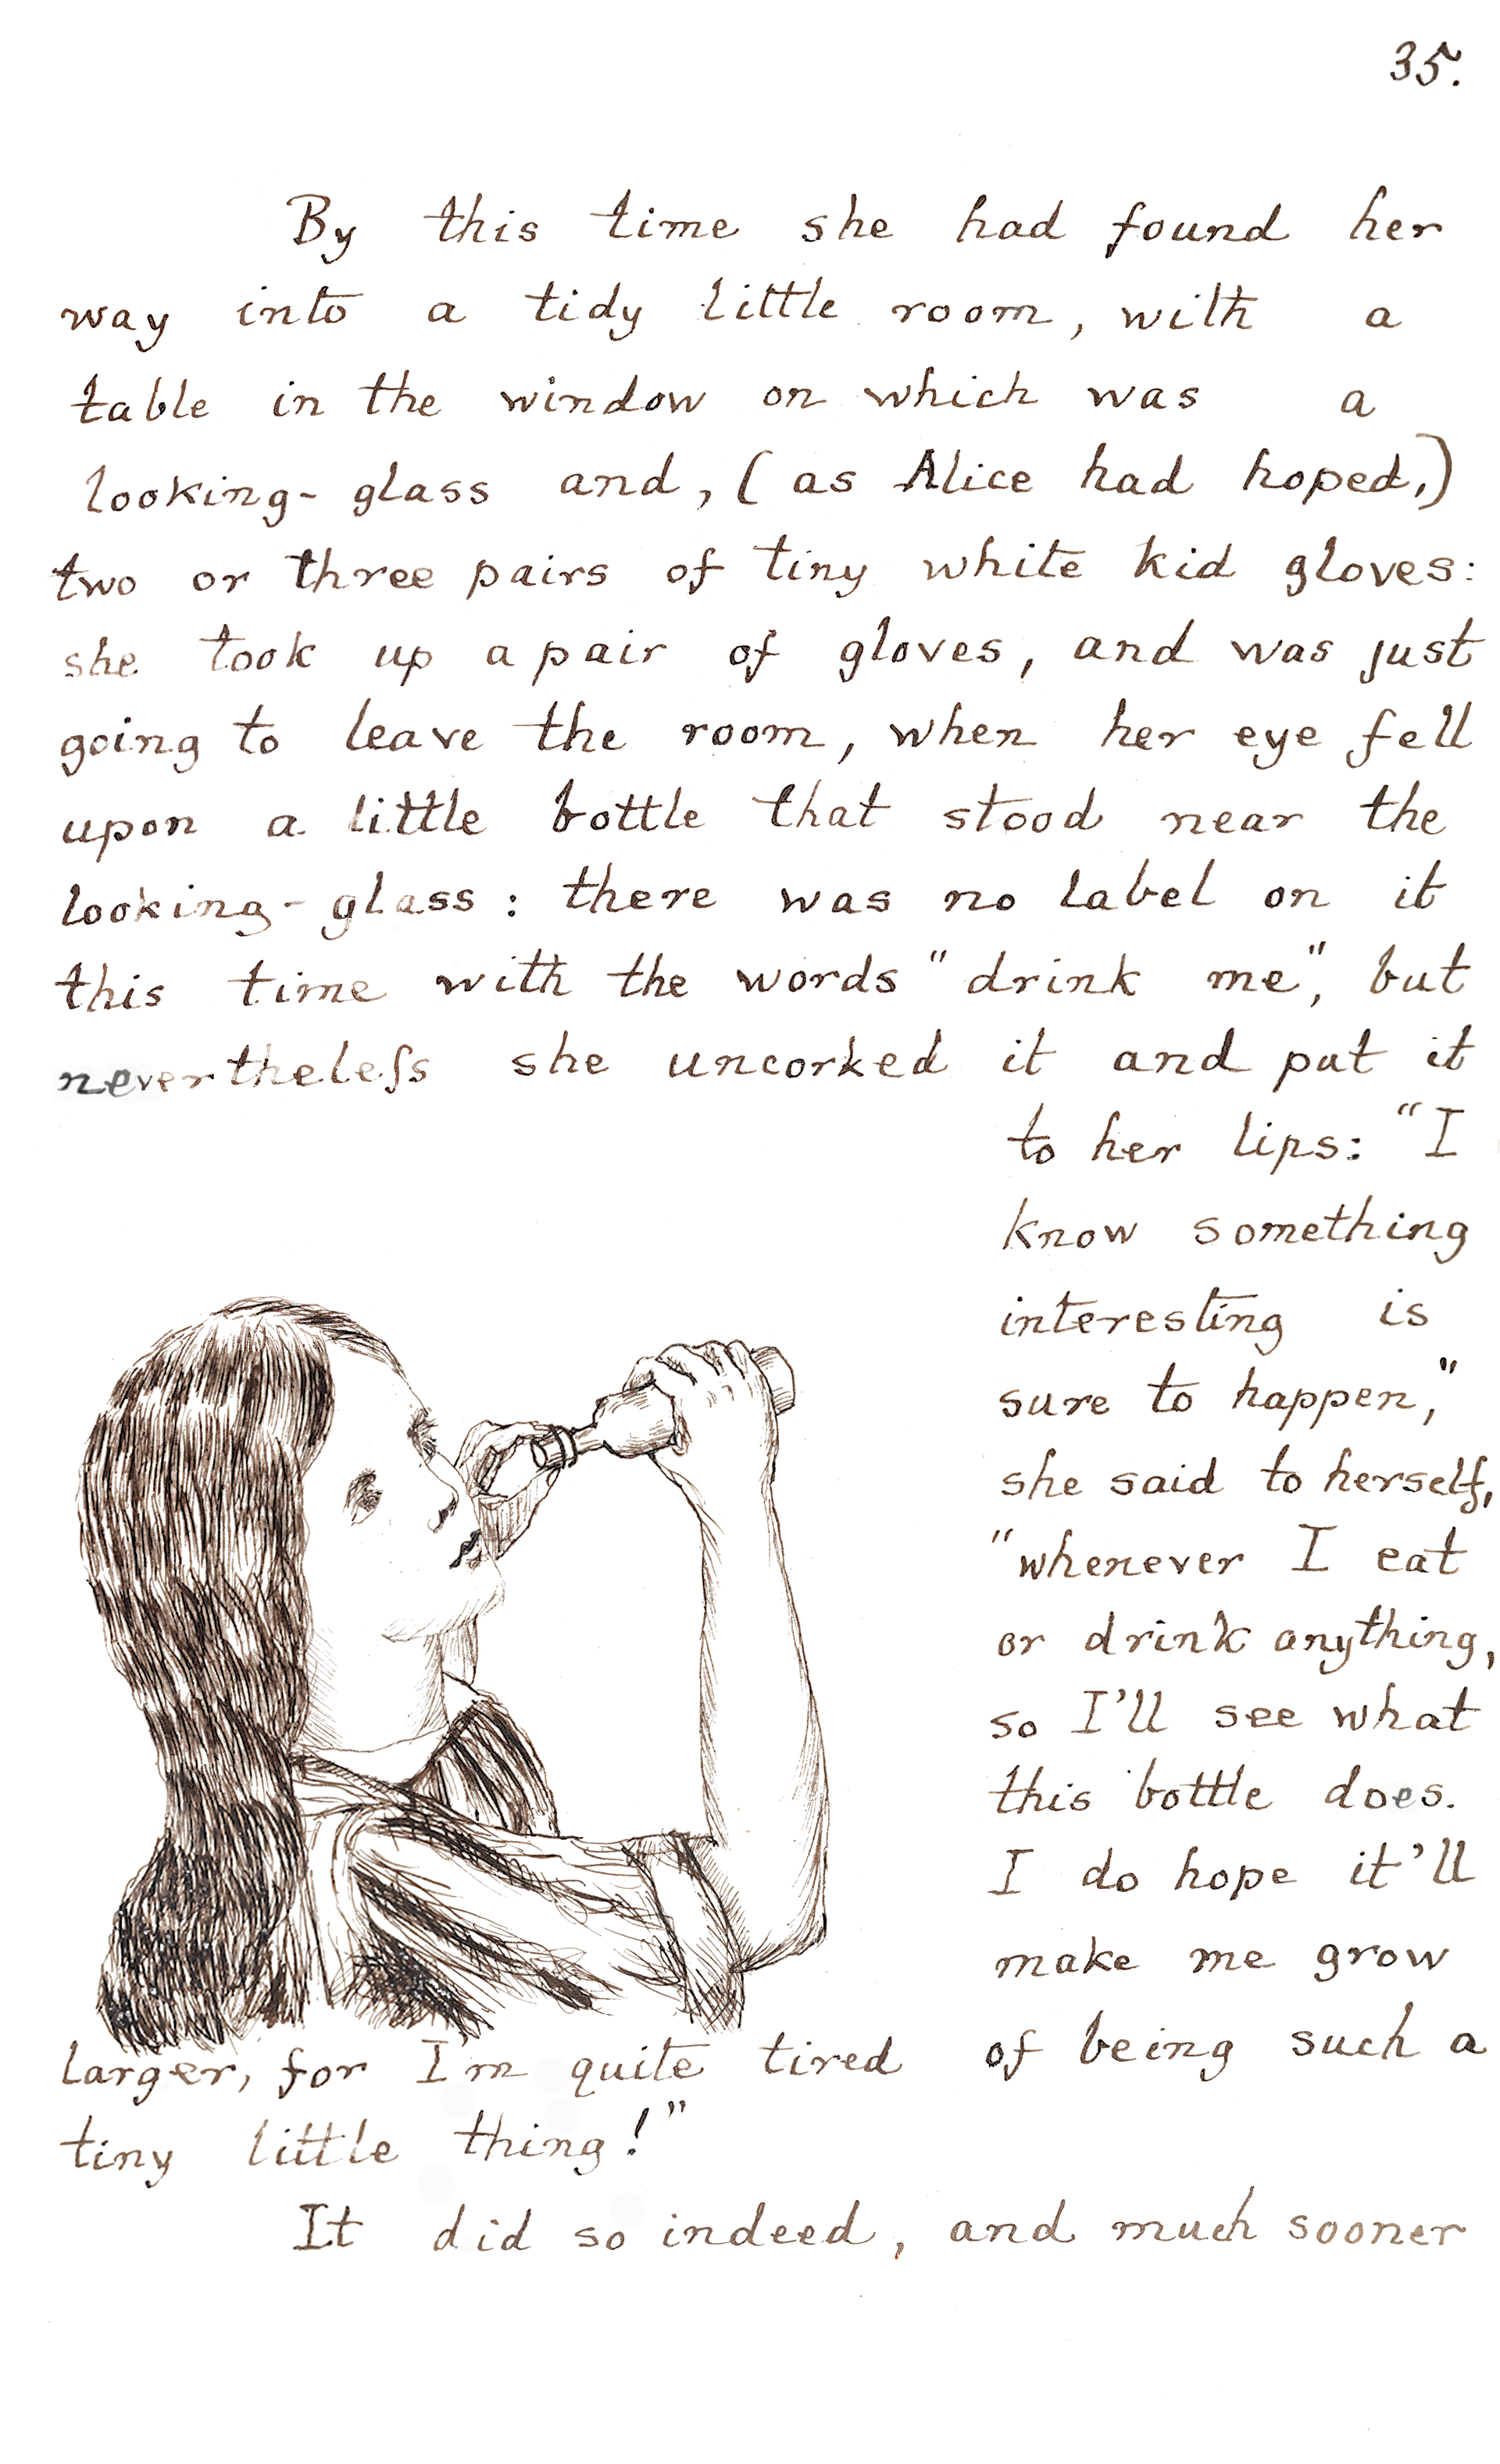 35.
By this time she had found her
way into a tidy little room, with a
table in the window on which was a
looking-glass and, (as Alice had hoped,)
two or three pairs of tiny white kid gloves:
she took up a pair of gloves, and was just
going to leave the room, when her eye fell
upon a little bottle that stood near the
looking-glass: there was no label on it
this time with the words "drink me", but
nevertheleſs she uncorked it and put it
to her lips: "I
know something
interesting is
sure to happen,"
she said to herself,
"whenever I eat
or drink anything,
so I'll see what
this bottle does.
I do hope it'll
make me grow
larger, for I'm quite tired of being such a
tiny little thing!"
It did so indeed, and much sooner